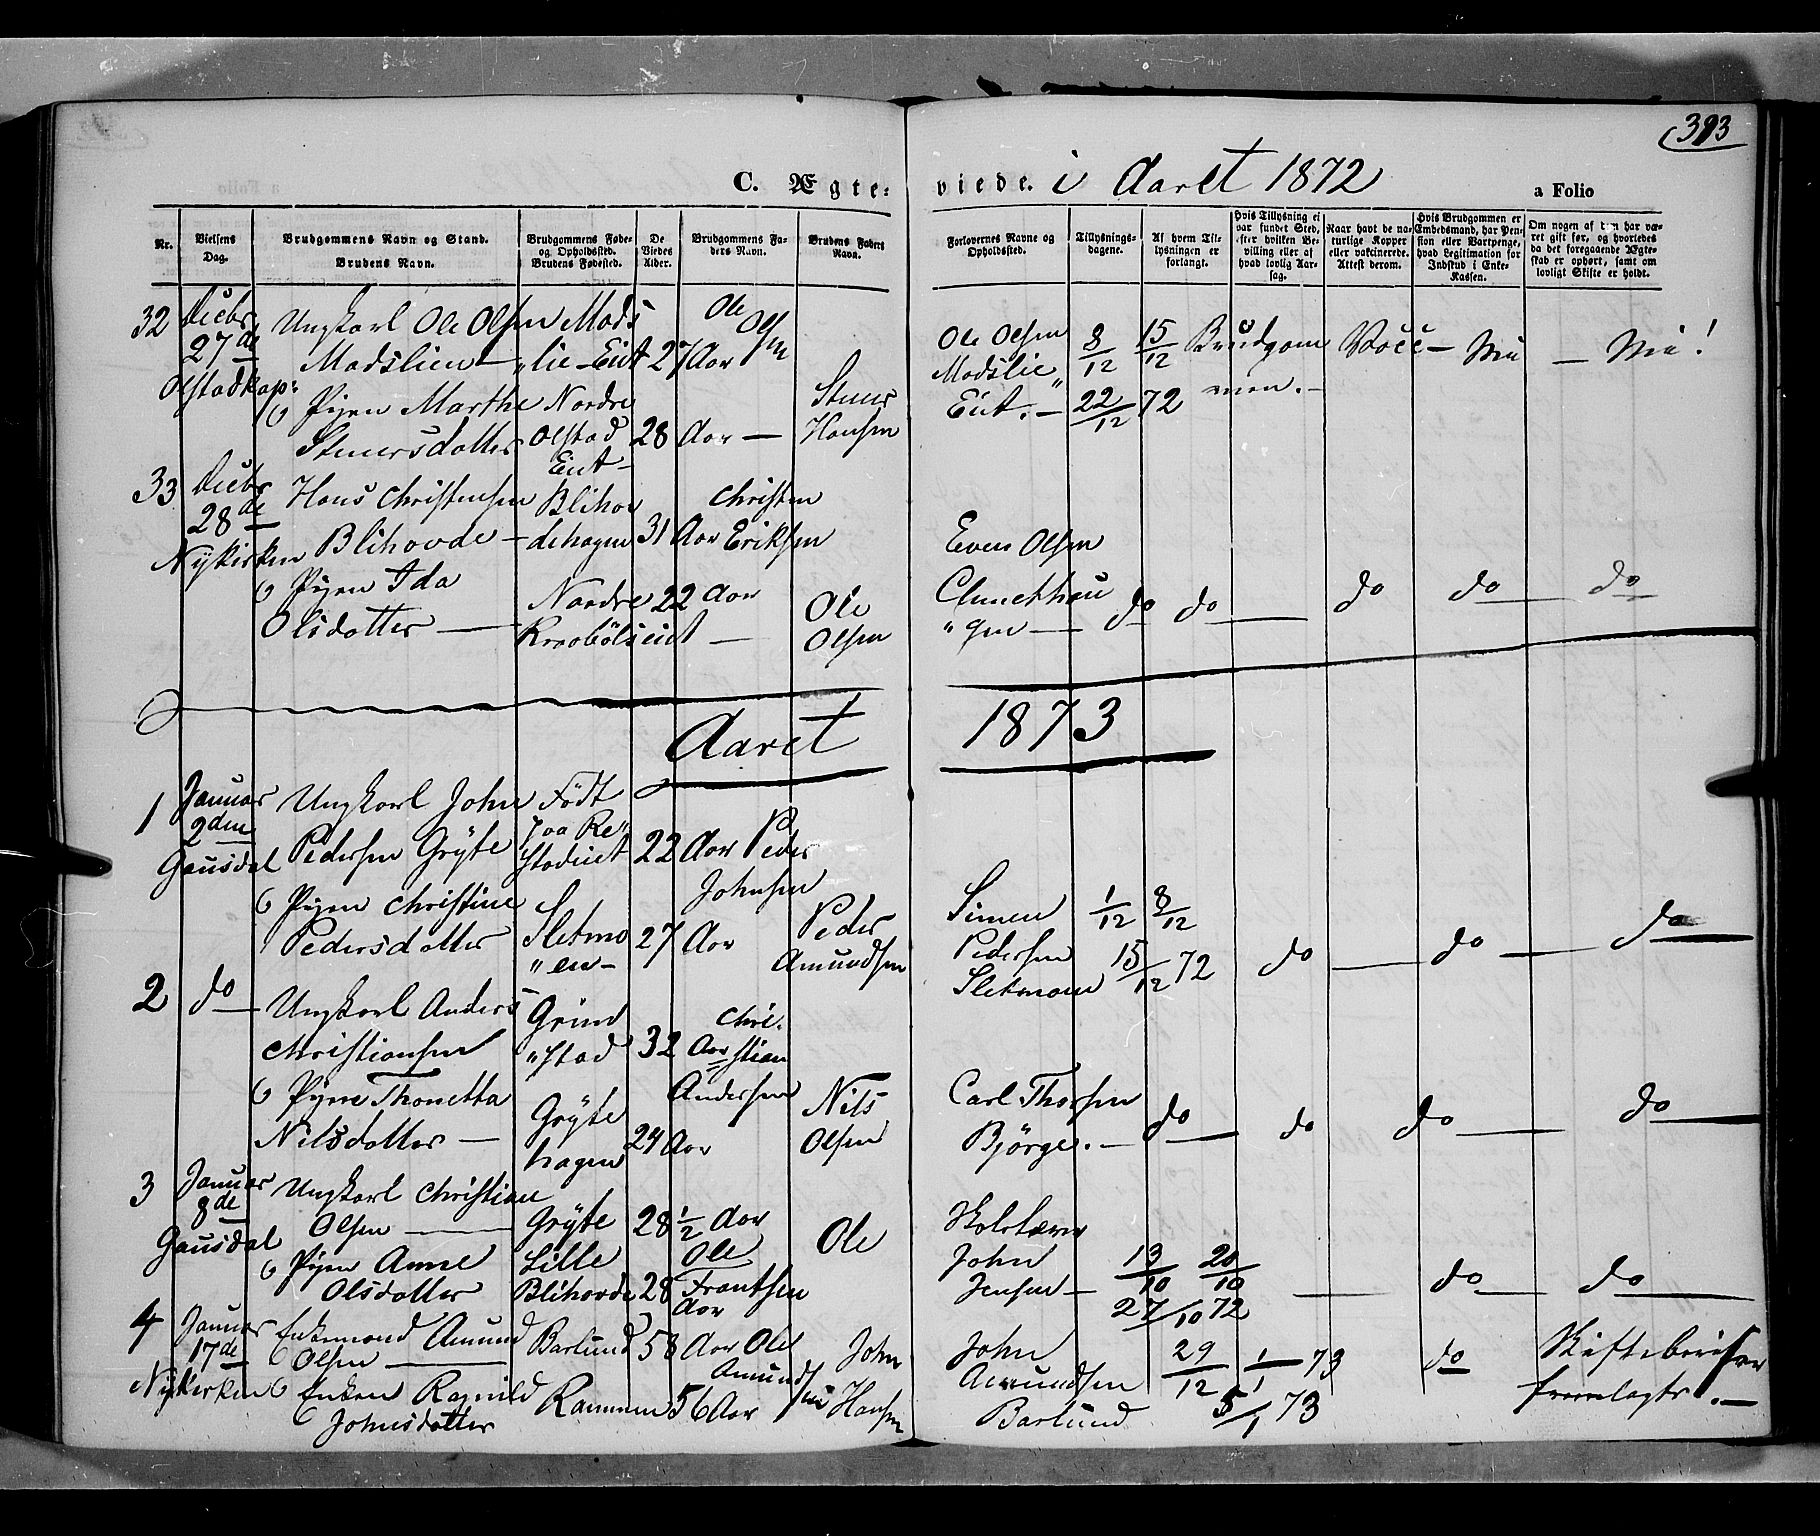 393
C. Ægte-
viede. i Aaret 1872
a Folio
Nr.
Vielsens Dag.
Brudgommens Navn og Stand.
Brudens Navn.
Brudgommens Føde- og Opholdssted.
Brudens Fødested.
De Viedes Alder.
Brudgommens Faders Navn.
Brudens Faders Navn.
Forlovernes Navne og Opholdssted.
Tillysnings-dagene.
Af hvem Tillysningen er forlangt.
Hvis Tillysning ei var fundet Sted, efter hvilken Bevilling eller af hvad lovlig Aarsag.
Naar havt de naturlige Kopper eller vaktinerede. Attest derom.
Hvis Brudgommen er Embedsmand, har Pension eller Vartpenge, hvad Legitimation for Indskud i Enke-Kassen.
Om nogen af dem har været gift før, og hvorledes da det foregaaende Ægteskab er ophørt, samt om lovligt Skifte er holdt.
32 Decbr 27de Olstadkap:
Ungkarl Ole Olsen
Madslien —
Mads
„lie — Eiet 27 Aar
Ole Olsen
Pigen Marthe
Steuersdatter
Nordre
Olstad
Eiet — 28 Aar —
Steuer
Hansen
Ole Olsen
Madslie
„Eiet. —
8/12 15/12
22/12 72
Brudgom
men. —
Vacc — Nei — Nei!
33 Decbr 28de Nykirken
Hans Christensen
Blihovde —
Blihov
dehagen 31 Aar
Christen
Eriksen
Pigen Ida
Olsdatter —
Nordre
Kraabølseiet 22 Aar —
Ole
Olsen
Even Olsen
„gen — do do — do do — do
Aaret 1873
1 Januar 2den Gausdal
Ungkarl John
Pedersen Gryte
Født
paa Re„
stadeiet 22 Aar
Peder
Johnsen
Pigen Christine
Pedersdatter
Sletmo
„en — 27 Aar
Peder
Amundsen
Simen
Pedersen
Sletmoen
1/12 8/12
15/12 72
do — do — do
2 do —
Ungkarl Anders
Christiansen
Grim
„stad 32 Aar
Chri-
stian
Andersen
Pigen Thonetta
Nilsdatter —
Gryte
hagen 24 Aar
Nils
Olsen
Carl Thorsen
Bjørge. — do — do do — do
3 Januar 8de Gausdal
Ungkarl Christian
Olsen —
Gryte 28 1/2 Aar
Ole
Frantsen
Pigen Anne
Olsdatter
Lille
Blihovde 28 Aar
Ole
Skolelærer
John
Jensen —
13/10 20/10
27/10 72
— do — do
4 Januar 17de Nykirken
Enkemand Amund
Olsen —
Barlund 58 Aar
Ole
Amundsen
Enken Ragnild
Johnsdatter
Rammen 56 Aar
John
Hansen
John
Amundsen
Barlund
29/12 1/1 — 73
5/1 73
do
Skiftebeviser
fremlagte. —